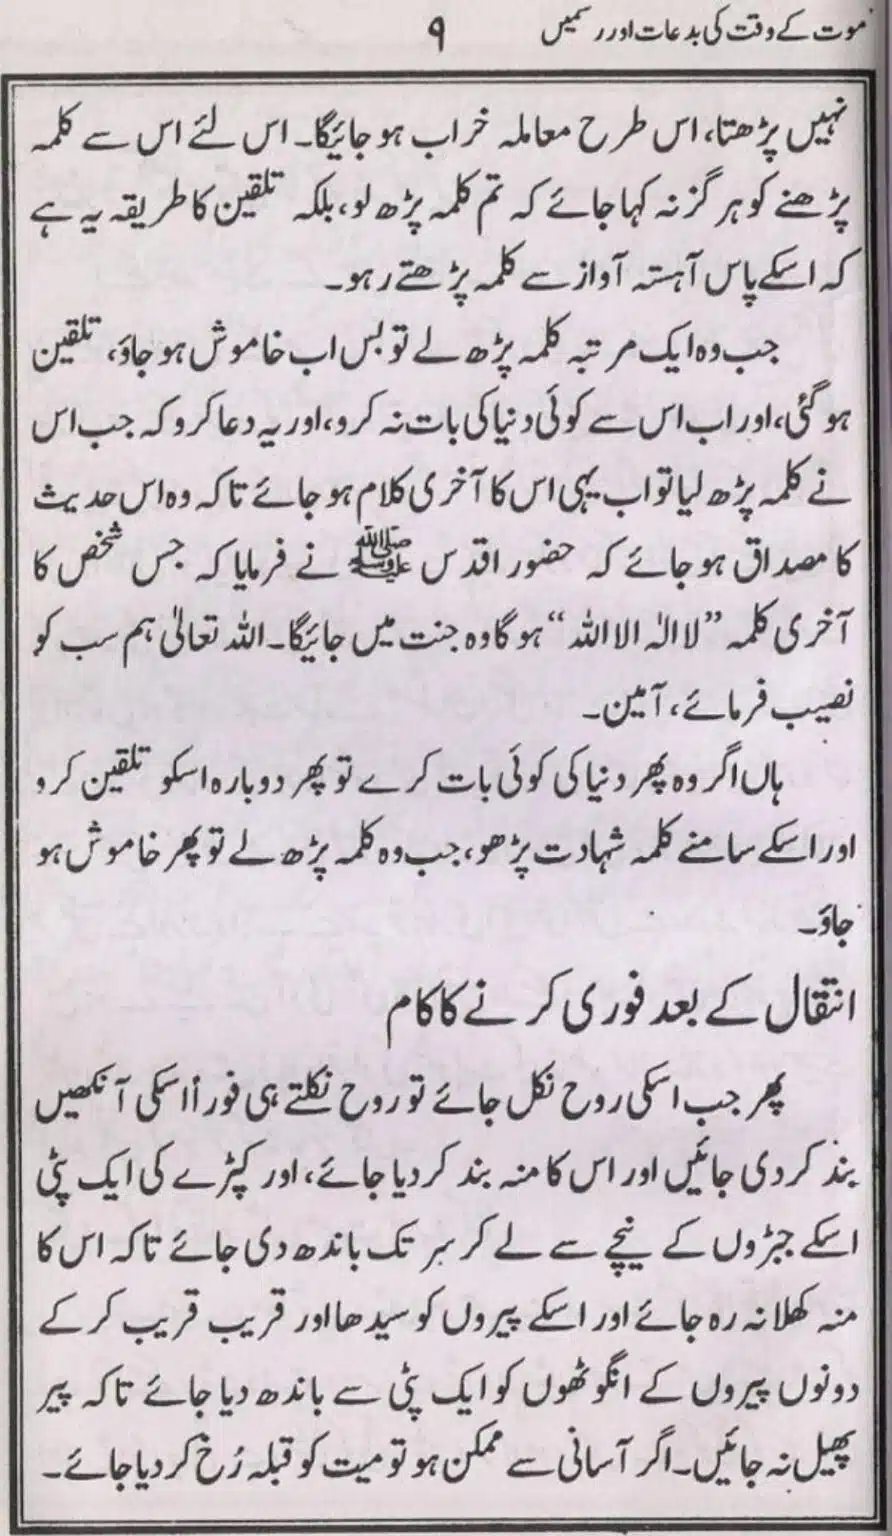 موت کے وقت کی بدعات اور رسمیں ۹
نہیں پڑھتا، اس طرح معاملہ خراب ہو جائیگا۔ اس لئے اس سے کلمہ
پڑھنے کو ہرگز نہ کہا جائے کہ تم کلمہ پڑھ لو، بلکہ تلقین کا طریقہ یہ ہے
کہ اسکے پاس آہستہ آواز سے کلمہ پڑھتے رہو۔
جب وہ ایک مرتبہ کلمہ پڑھ لے تو بس اب خاموش ہو جاؤ، تلقین
ہو گئی، اور اب اس سے کوئی دنیا کی بات نہ کرو، اور یہ دعا کرو کہ جب اس
نے کلمہ پڑھ لیا تو اب یہی اس کا آخری کلام ہو جائے تاکہ وہ اس حدیث
کا مصداق ہو جائے کہ حضور اقدس ﷺ نے فرمایا کہ جس شخص کا
آخری کلمہ ”لا الہ الا اللہ“ ہوگا وہ جنت میں جائیگا۔ اللہ تعالیٰ ہم سب کو
نصیب فرمائے، آمین۔
ہاں اگر وہ پھر دنیا کی کوئی بات کرے تو پھر دوبارہ اسکو تلقین کرو
اور اسکے سامنے کلمہ شہادت پڑھو، جب وہ کلمہ پڑھ لے تو پھر خاموش ہو
جاؤ۔
انتقال کے بعد فوری کرنے کا کام
پھر جب اسکی روح نکل جائے تو روح نکلتے ہی فوراً اسکی آنکھیں
بند کر دی جائیں اور اس کا منہ بند کر دیا جائے، اور کپڑے کی ایک پٹی
اسکے جبڑوں کے نیچے سے لے کر سر تک باندھ دی جائے تاکہ اس کا
منہ کھلا نہ رہ جائے اور اسکے پیروں کو سیدھا اور قریب قریب کر کے
دونوں پیروں کے انگوٹھوں کو ایک پٹی سے باندھ دیا جائے تاکہ پیر
پھیل نہ جائیں۔ اگر آسانی سے ممکن ہو تو میت کو قبلہ رُخ کر دیا جائے۔